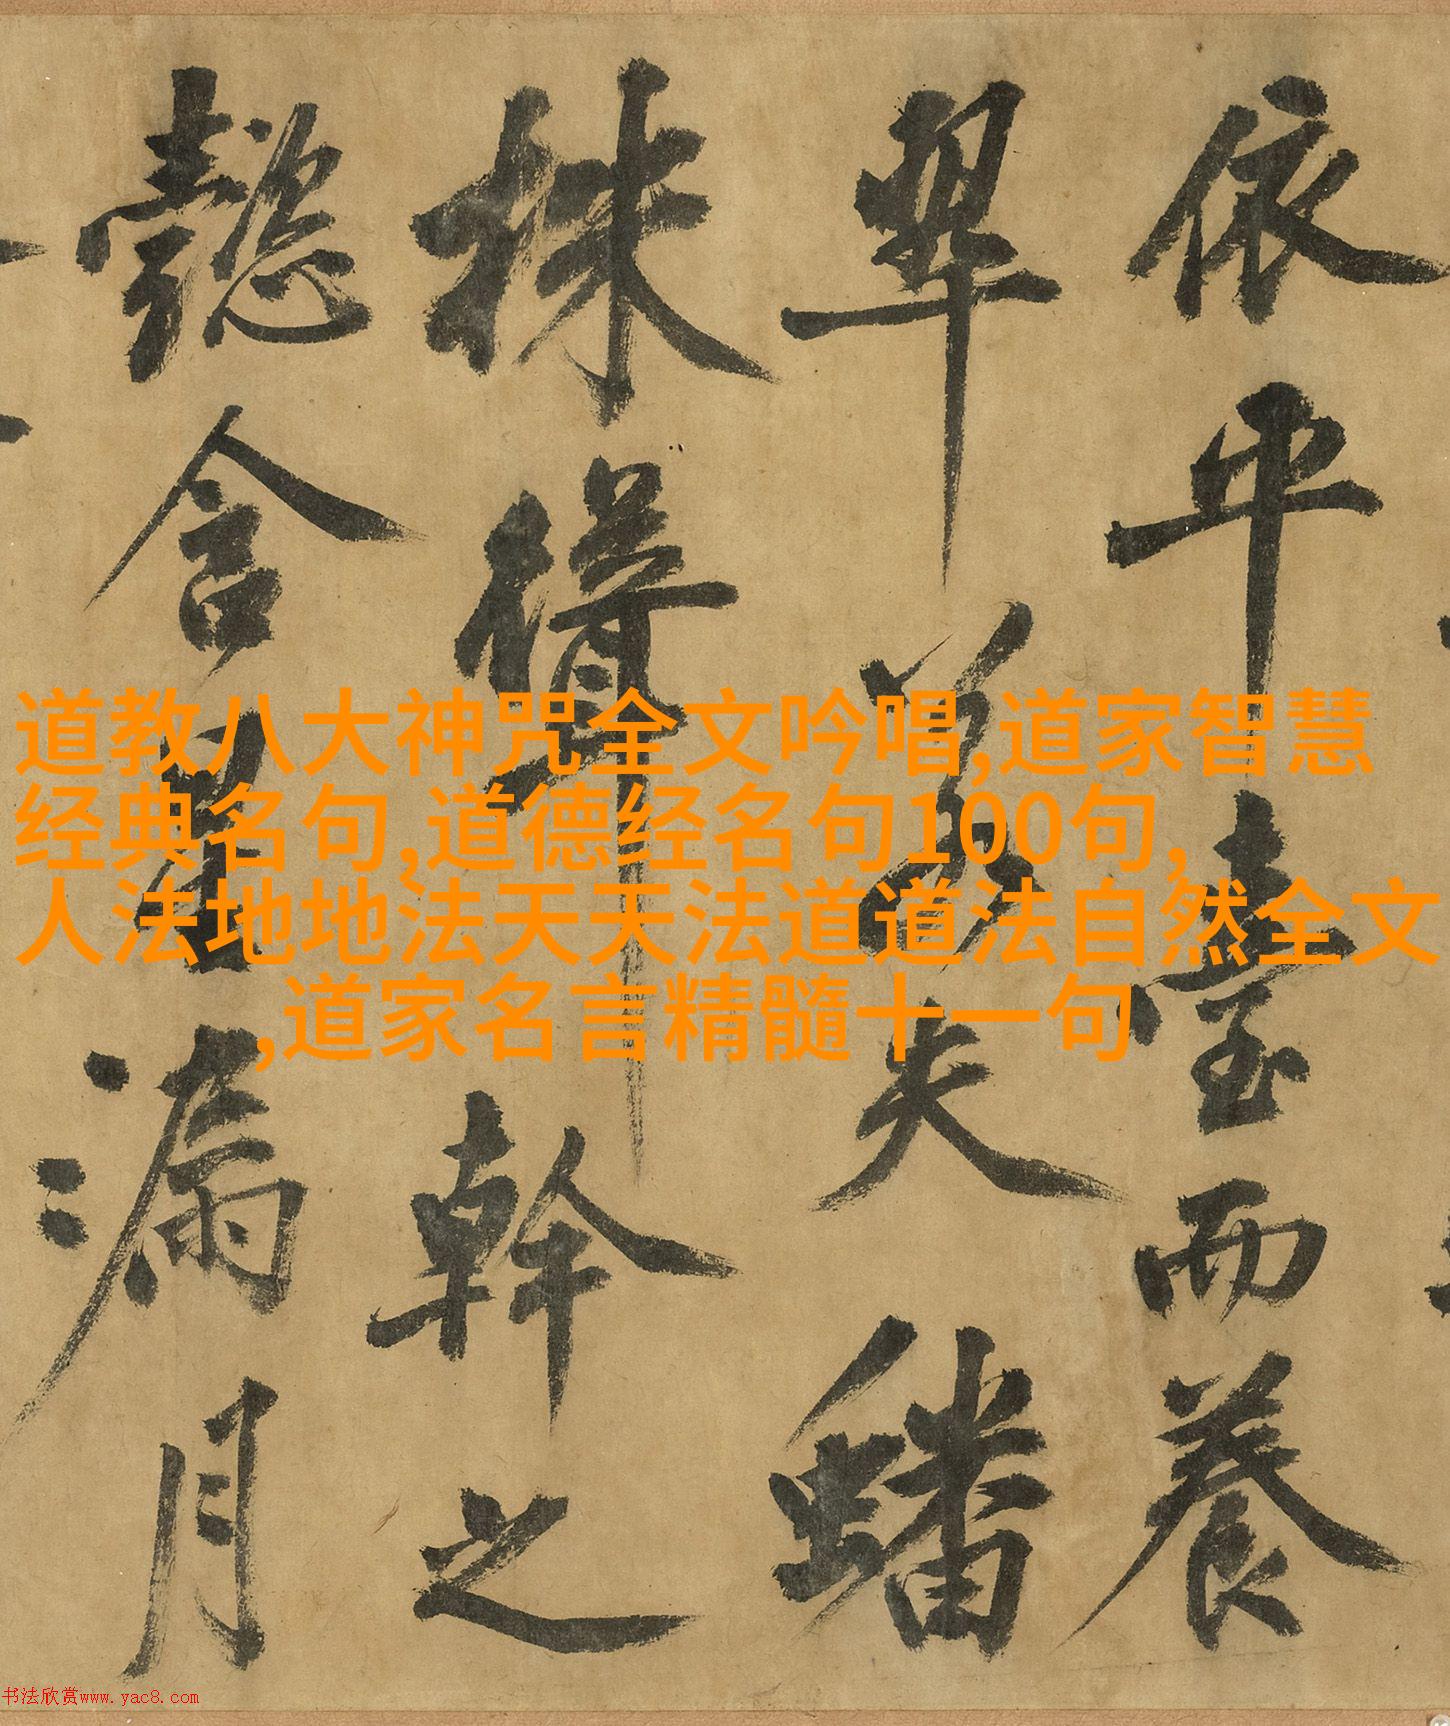 依平臺而養
翠若夫蟠
株聳幹之
懿含星漏月
道教八大神咒全文吟唱,道家智慧
经典名句,道德经名句100句,
人法地地法天天法道道法自然全文
,道家名言精髓十一句
书法欣赏www.yac8.com